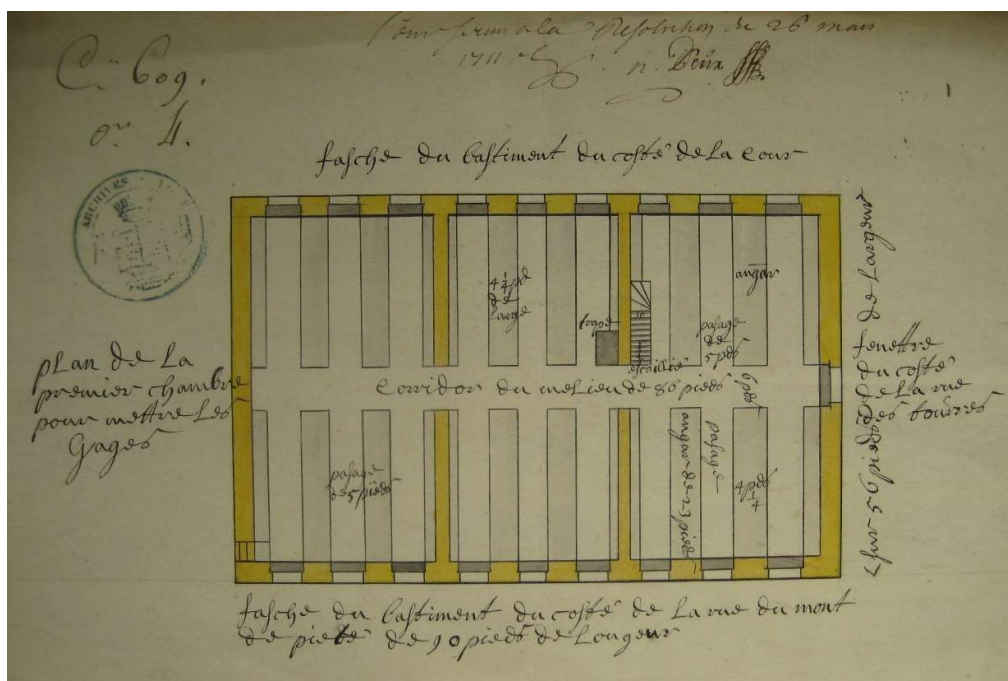 C. 609.
n. 4.
Conformé a la Resolution du 26 mars
1711
ARCHIVES
fasche du bastiment du costé de la Cour
plan de la
premier chambre
pour mettre les
Gages
4 1/4 pd
de
large
trape
escaillié
angar
pasage
de
5 pds
6 pds
Corridor du melieu de 86 pieds
pasage
de 5 pieds
pasage
angar de 23 pieds
4 pds
1/4
fenettre
du costé
de la rue
des bourres
sur 56 pieds de largeur
fasche du bastiment du costé de la rue du mont
de pieté de 90 pieds de longeur